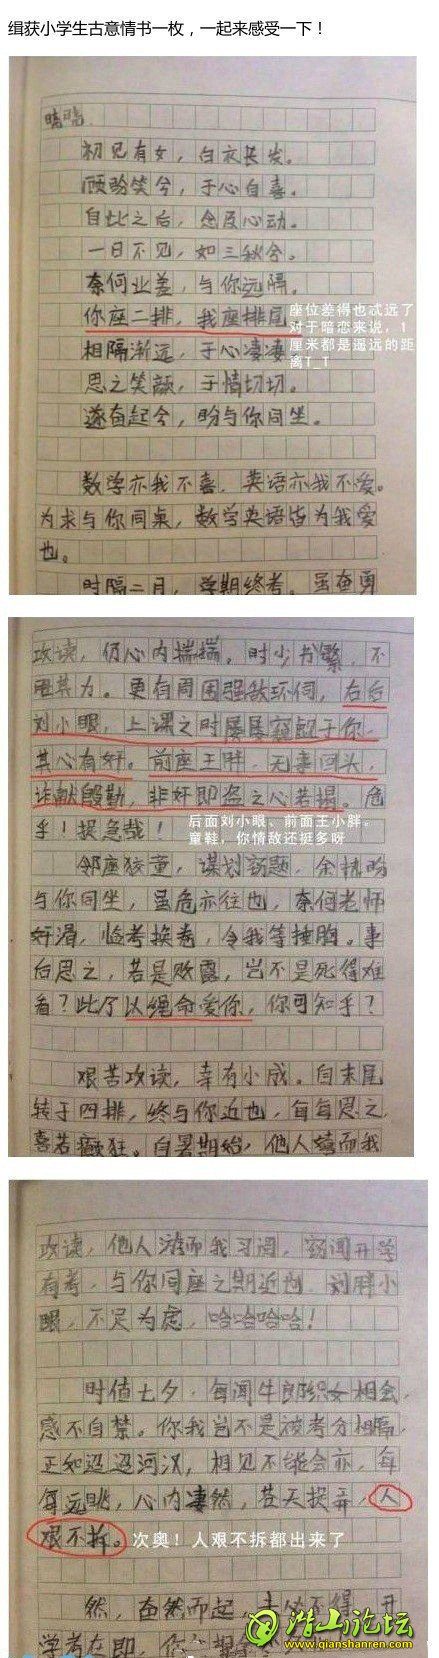 缉获小学生古意情书一枚，一起来感受一下！
晗晗.
初见有女，白衣长发。
顾盼笑兮，于心自喜。
自此之后，念及心动。
一日不见，如三秋兮。
奈何业差，与你远隔。
你座二排，我座排尾
座位差得也忒远了
对于暗恋来说，1
厘米都是遥远的距
离T_T
相隔渐远，于心凄凄
思之笑颜，于情切切.
遂奋起兮，盼与你同坐。
数学亦我不喜，英语亦我不爱。
为求与你同桌，数学英语皆为我爱
也。
时隔二月，学期终考。虽奋勇
攻读，仍心内揣揣。时少书繁，不
胜其力。更有周围强敌环伺，右后
刘小眼，上课之时屡屡窥觑于你，
其心有奸。前座王胖，无事回头，
诈献殷勤，非奸即盗之心若揭。危
乎！捉急哉！
后面刘小眼、前面王小胖。
童鞋，你情敌还挺多呀
邻座狡童，谋划窃题，余情盼
与你同坐，虽危亦往也，奈何老师
奸滑，临考换卷，令我等捶胸。事
后思之，若是败露，岂不是死得难
看？此乃以绳命爱你，你可知乎？
艰苦攻读，幸有小成。自末尾
转于四排，终与你近也，每每思之，
喜若癫狂。自暑期始，他人嬉而我
攻读，他人游而我习湎，窃闻开学
有考，与你同座之期近也，刘胖小
眼，不足为虑，哈哈哈哈！
时值七夕，每闻牛郎织女相会，
感不自禁。你我岂不是被考分相隔，
正如迢迢河汉，相见不能会亦，每
每远眺，心内凄然，苍天捉弄，人
艰不拆。
次奥！人艰不拆都出来了
然，奋然而起，
学考在即，你
潜山论坛
www.qianshanren.com